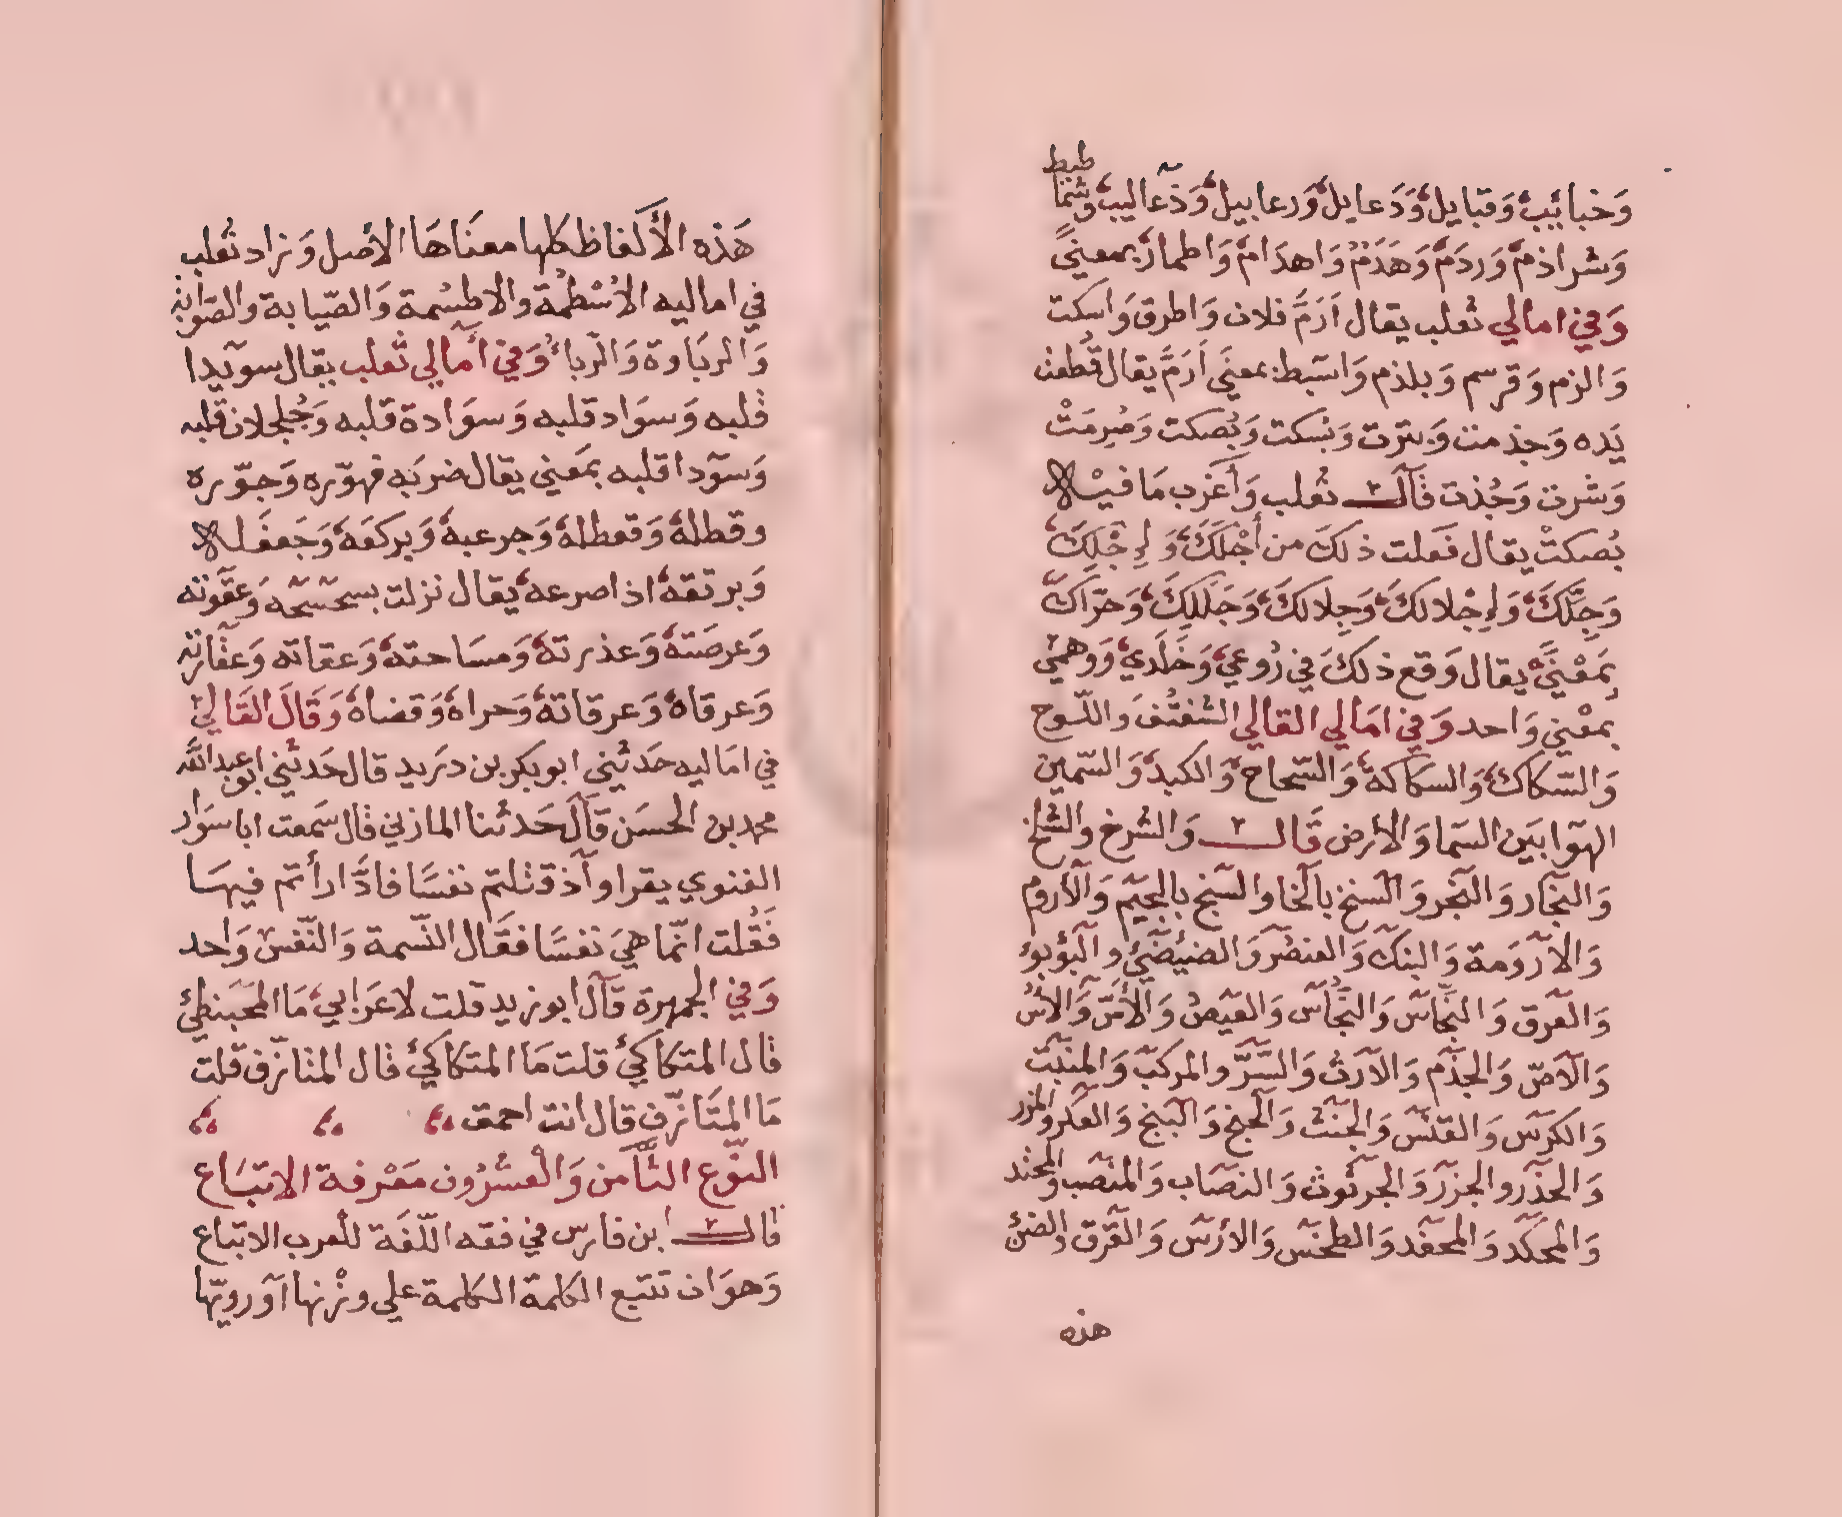 وَخبائيب وَقبايل وَدَعايل وَرعابيل وَذعاليب وشما
طيط
وَشراذم وَردَم وَهَدَم وَاهدَام وَاطمار بمعنىً
وَفي امالي ثعلب يقال اَرَمَّ فلان وَاطرق وَاسكت
وَالزم وَقرسم وَبلذم وَاسبط بمعنَى اَرَمَّ يقال قُطعت
يَده وَجذمت وَبترت وَبسكت وَبُصكت وَصُرِمَتْ
وَشرت وَجُذت قال ثعلب وَأغرب مَا فيْه
بُصكتْ يقال فَعلت ذلكَ من أجْلَكَ وَلِإجْلِكَ
وَجِلّكَ وَلإجْلالكَ وَجِلالكَ وَجَلَلِكَ وَجَرّاكَ
بِمَعْنَىً يقال وَقع ذلكَ في رُوعي وَخَلَدي وَوهمي
بِمَعْني وَاحد وَفي امَالي القالي الشغتُف وَاللّوح
وَالسّكاك وَالسكاكة وَالسّحاح وَالكبد وَالسّمين
الهوا بَين السّما وَالارض قال وَالشرخ والشلخ
وَالنجار وَالنجر وَالسنخ بالخا والسنج بالجيم وَالاروم
وَالارومة وَالبنك وَالعنصر وَالضئضئ والبؤبؤ
وَالعرق وَالنِّجاس وَالنُّجاس وَالعيص وَالأسّ وَالاسُّ
وَالاصّ وَالجذم وَالارث وَالسَّرّ والمركب وَالمنبت
وَالكرس وَالقنس وَالجنث وَالحنج وَالبنج وَالعكر والمزر
وَالجذر والجزر وَالجرثوث وَالنصَاب وَالمنصب والمحتد
وَالمحكد وَالمحفد وَالطخس وَالارس وَالقرق والضئ
هذه
هَذه الألفاظ كلها معنَاهَا الاصل وَزاد ثعلب
في اماليه الاُسْطُمَّة والاطسُمة وَالصّيابة والصّوابة
وَالربَاوة وَالربا وَفي أمالي ثعلب يقال سويدا
قلبه وَسوَاد قلبه وَسوَادة قلبه وَجُلجلان قلبه
وَسوَدا قلبه بمَعني يقال ضربَه فهوّره وَجوّره
وقطله وَقعطله وَجرعبه وَبركعَه وَجَعفله
وَبرتقه اذا صرعه يقال نزلت بسحسَحه وَعقوته
وَعرصَته وَعذرته وَمسَاحته وَعقاته وَعقارته
وَعرقاه وَعرقاته وَحراه وَقضاه وَقَالَ القَالي
في امَاليه حَدثني ابو بكر بن دريد قال حَدثني ابو عبد اللّه
محمد بن الحسَن قَالَ حَدثنا المازني قال سَمعت ابا سوَار
الغنوي يقرا واذ قتلتم نفسَا فادَّارأتم فيهَا
فَقُلت انّما هيَ نفسَا فقَال النّسمة وَالنّفس وَاحد
وَفي الجمهرة قال ابو زيد قلت لاعرَابي مَا المحبنطئ
قال المتكاكئ قلت مَا المتكاكئ قال المتازّف قلت
مَا المتَازّف قال انت احمق
النّوع الثّامن وَالْعشْرُون مَعْرفة الاتبَاع
قال ابن فارس في فقه اللّغَة للعرب الاتباع
وَهوَ ان تتبع الكلمة الكلمة علي وزْنها اَو رويّها